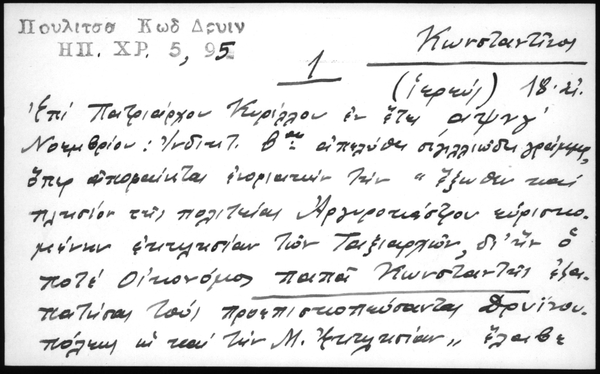 Πουλιτσα Κωδ Δρυιν
ΗΠ. ΧΡ. 5, 95
Κωνσταντῖνος
1
(ἱερεύς) 18. αἰ.
Ἐπί Πατριάρχου Κυρίλλου ἐν ἔτει αψνγ'
Νοεμβρίου: Ἰνδικτ. βας ἀπελύθη σιγιλλιῶδες γράμμα,
ὅπερ ἀποφαίνεται ἐνοριακήν τήν "ἔξωθεν καί
πλησίον τῆς πολιτείας Ἀργυροκάστρου εὑρισκο-
μένην ἐκκλησίαν τῶν Ταξιαρχῶν, δι' ἥν ὁ
ποτέ Οἰκονόμος παπᾶ Κωνσταντῆς ἐξα-
πατήσας τούς προεπισκοπεύσαντας Δρυϊνου-
πόλεως καί τήν Μ. Ἐκκλησίαν" ἔλαβε